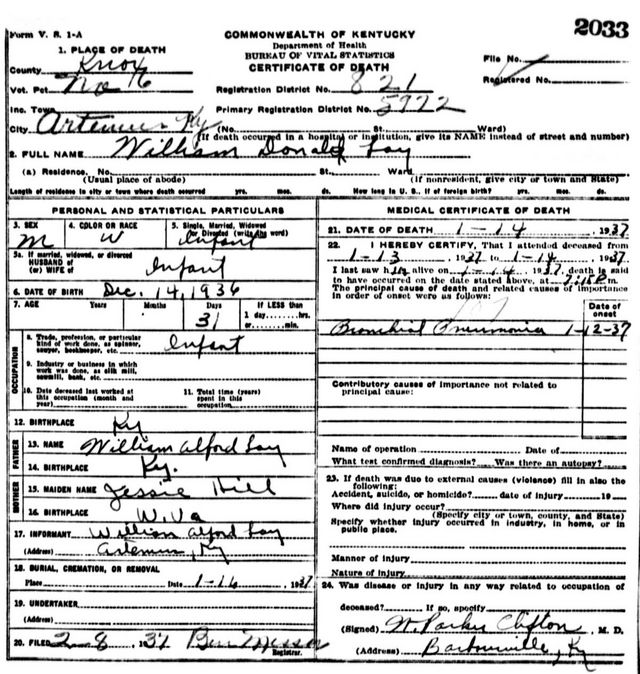 2033
Form V. S. 1-A
COMMONWEALTH OF KENTUCKY
Department of Health
BUREAU OF VITAL STATISTICS
CERTIFICATE OF DEATH
1. PLACE OF DEATH
County Knox
File No.
Registered No.
Vot. Pct. No 16
Registration District No. 821
Inc. Town
Primary Registration District No. 5972
City Artemus Ky (No. St. Ward)
(If death occurred in a hospital or institution, give its NAME instead of street and number)
2. FULL NAME William Donald Lay
(a) Residence. No. St., Ward
(Usual place of abode) (If nonresident, give city or town and State)
Length of residence in city or town where death occurred yrs. mos. ds. How long in U. S., if of foreign birth? yrs. mos. ds.
PERSONAL AND STATISTICAL PARTICULARS
3. SEX 4. COLOR OR RACE 5. Single, Married, Widowed
or Divorced (write the word)
M W Infant
5a. If married, widowed, or divorced
HUSBAND of
(or) WIFE of Infant
6. DATE OF BIRTH Dec. 14, 1936
7. AGE Years Months Days If LESS than
31 1 day, hrs.
or min.
OCCUPATION
8. Trade, profession, or particular
kind of work done, as spinner,
sawyer, bookkeeper, etc. Infant
9. Industry or business in which
work was done, as silk mill,
sawmill, bank, etc.
10. Date deceased last worked at
this occupation (month and
year)
11. Total time (years)
spent in this
occupation
12. BIRTHPLACE Ky
FATHER
13. NAME William Alford Lay
14. BIRTHPLACE Ky.
MOTHER
15. MAIDEN NAME Jessie Hill
16. BIRTHPLACE W. Va
17. INFORMANT William Alford Lay
(Address) Artemus, Ky
18. BURIAL, CREMATION, OR REMOVAL
Place Date 1-16, 1937
19. UNDERTAKER
(Address)
20. FILED 2-8, 1937
Registrar.
MEDICAL CERTIFICATE OF DEATH
21. DATE OF DEATH 1-14, 1937
22. I HEREBY CERTIFY, That I attended deceased from
1-13, 1937 to 1-14, 1937
I last saw him alive on 1-14, 1937, death is said
to have occurred on the date stated above, at m.
The principal cause of death and related causes of importance
in order of onset were as follows:
Date of
onset
Bronchial Pneumonia 1-12-37
Contributory causes of importance not related to
principal cause:
Name of operation Date of
What test confirmed diagnosis? Was there an autopsy?
23. If death was due to external causes (violence) fill in also the
following:
Accident, suicide, or homicide? date of injury 19
Where did injury occur?
(Specify city or town, county, and State)
Specify whether injury occurred in industry, in home, or in
public place.
Manner of injury
Nature of injury
24. Was disease or injury in any way related to occupation of
deceased? If so, specify
(Signed) W. Parker Clifton, M. D.
(Address) Barbourville, Ky